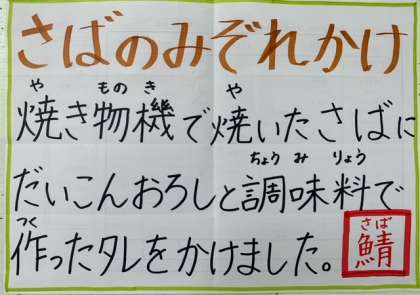 さばのみぞれかけ
や ものき や
焼き物機で焼いたさばに
ちょうみりょう
だいこんおろしと調味料で
つく
作ったタレをかけました。
さば
鯖